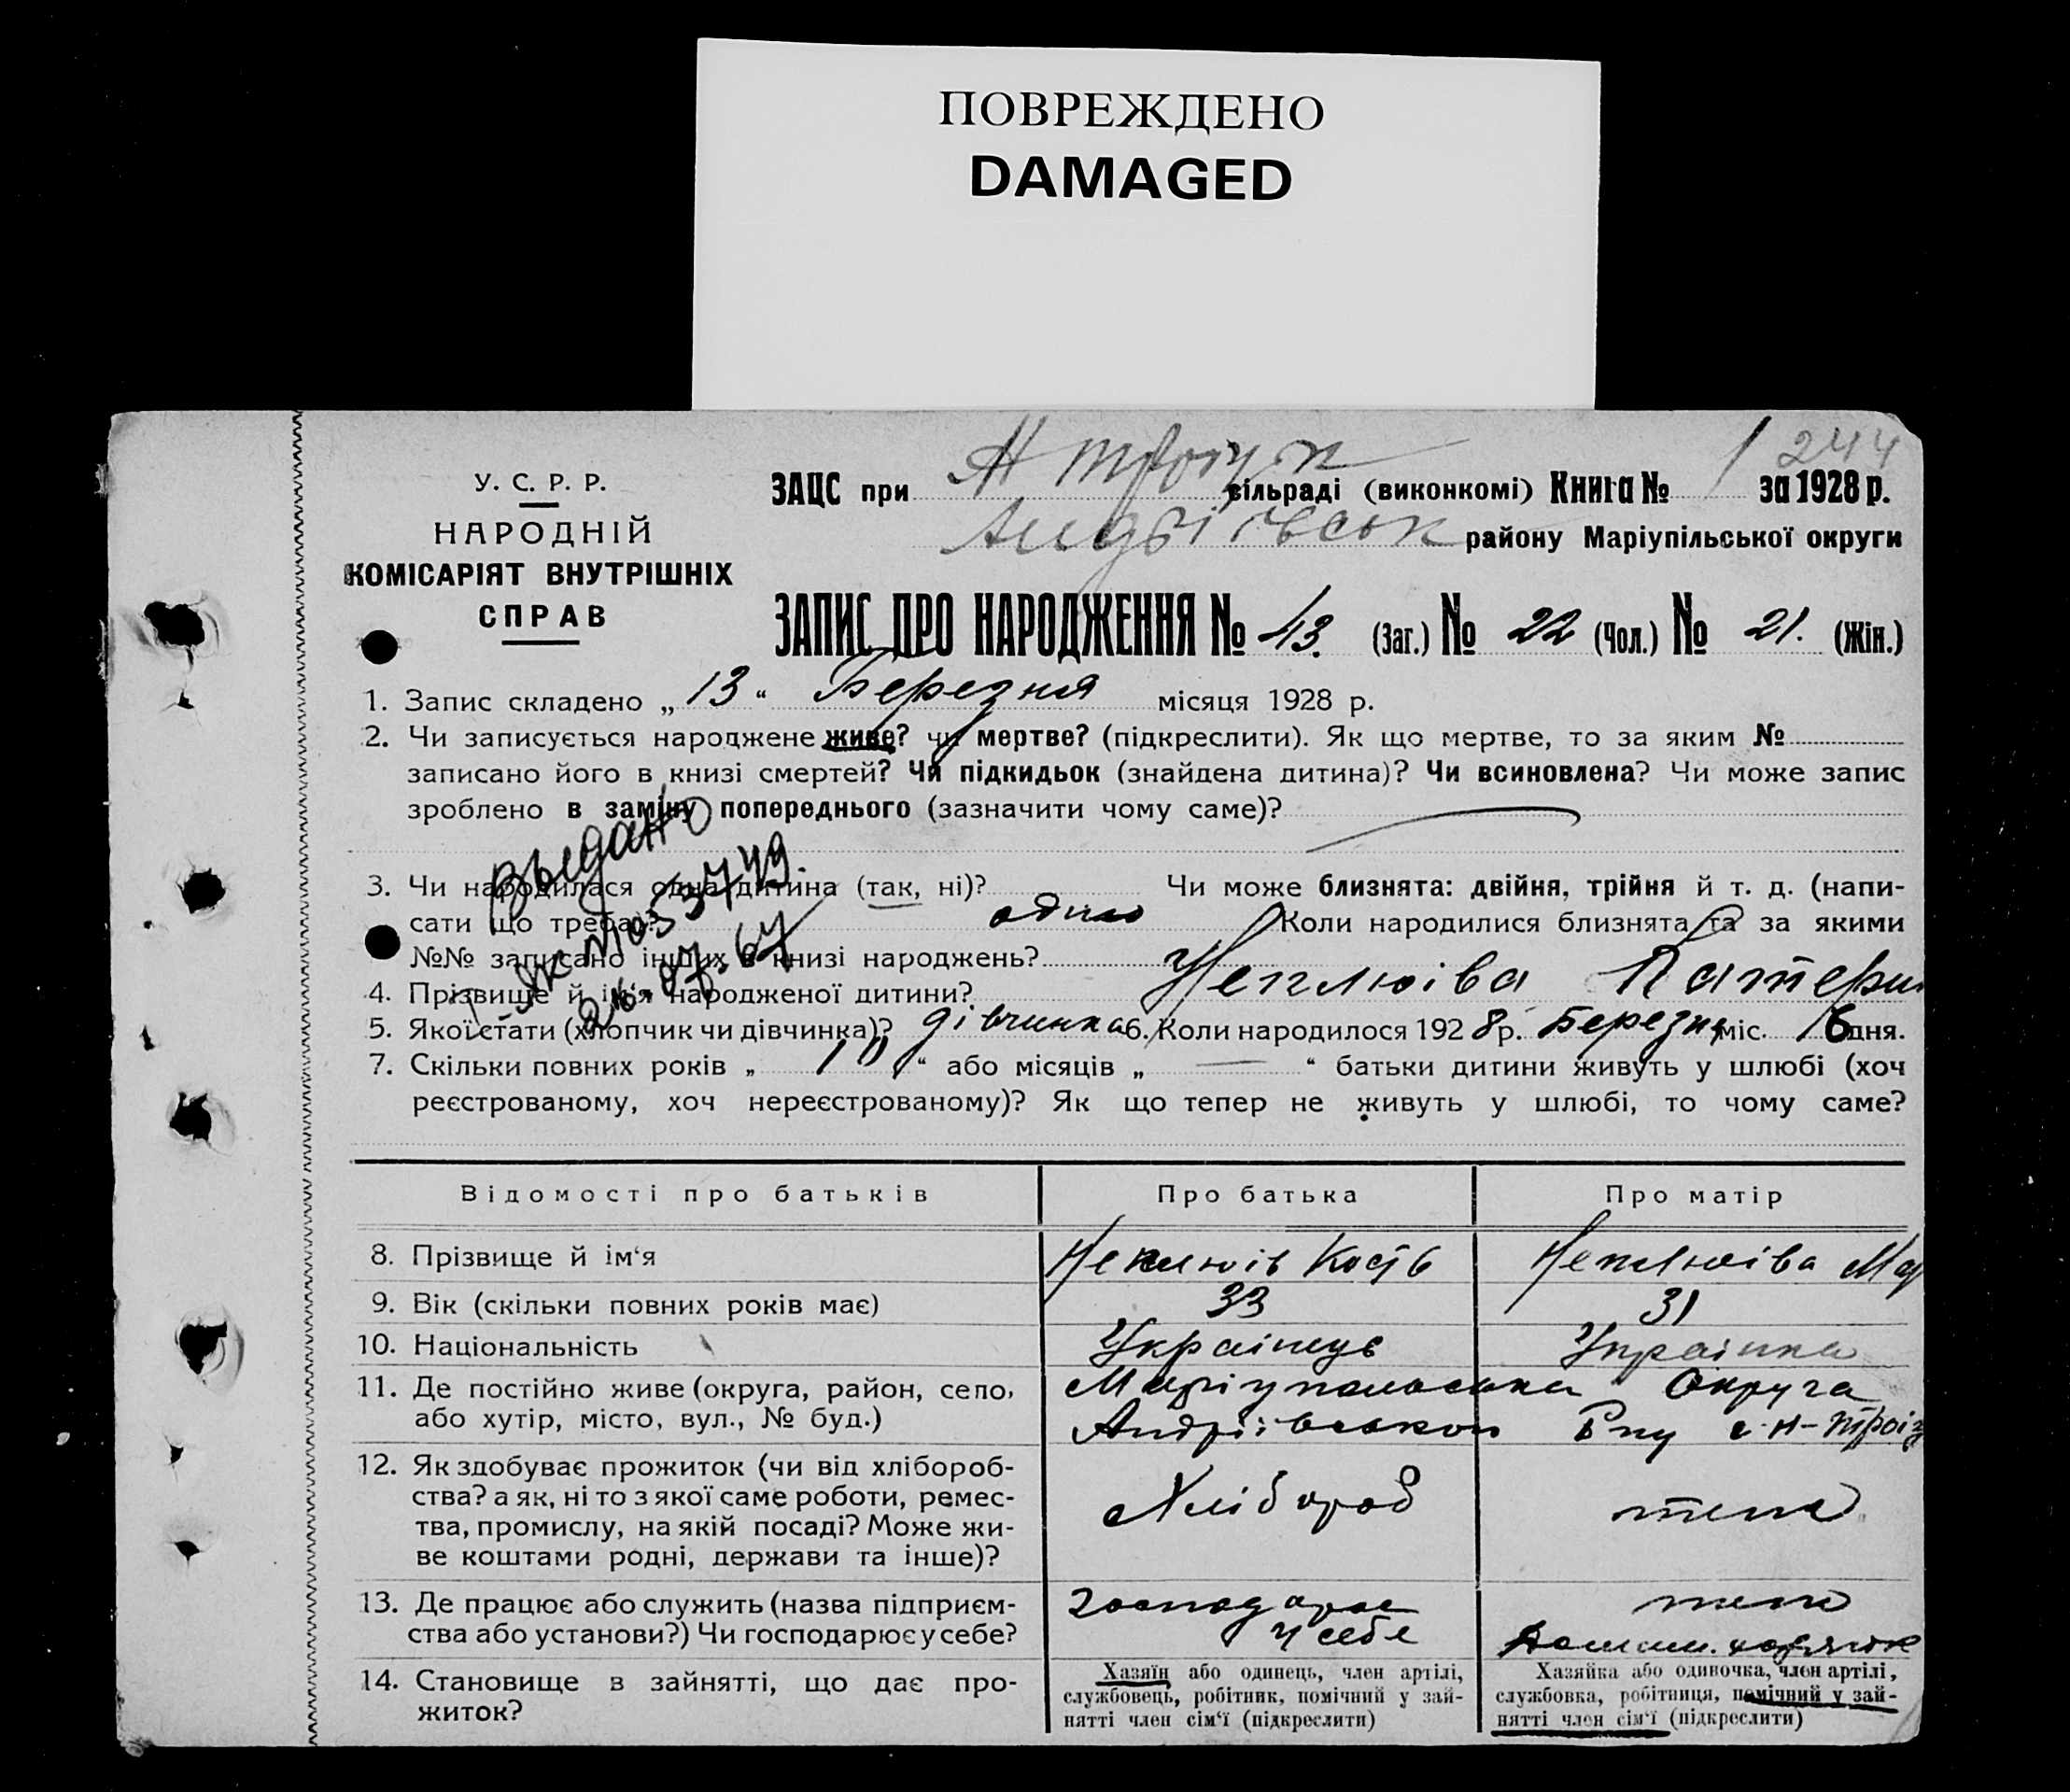 ПОВРЕЖДЕНО
DAMAGED
244
У. С. Р. Р.
НАРОДНІЙ
КОМІСАРІЯТ ВНУТРІШНІХ
СПРАВ
ЗАЦС при Н сільраді (виконкомі) Книга № 1 за 1928 р.
Андріївськ району Маріупільської округи
ЗАПИС ПРО НАРОДЖЕННЯ № 43. (Заг.) № 22 (Чол.) № 21. (Жін.)
1. Запис складено „ 13 “ Березня місяця 1928 р.
2. Чи записується народжене живе? чи мертве? (підкреслити). Як що мертве, то за яким №
записано його в книзі смертей? Чи підкидьок (знайдена дитина)? Чи всиновлена? Чи може запис
зроблено в заміну попереднього (зазначити чому саме)?
Выдано
3. Чи народилася одна дитина (так, ні)? Чи може близнята: двійня, трійня й т. д. (напи-
сати що треба)? одно Коли народилися близнята та за якими
№№ записано інших в книзі народжень?
4. Прізвище й ім‘я народженої дитини? Неплюіва Катери
5. Якої стати (хлопчик чи дівчинка)? дівчинка 6. Коли народилося 192 8 р. Березня міс. дня.
7. Скільки повних років „ “ або місяців „ — “ батьки дитини живуть у шлюбі (хоч
реєстрованому, хоч нереєстрованому)? Як що тепер не живуть у шлюбі, то чому саме?
Відомості про батьків Про батька Про матір
8. Прізвище й ім‘я Неплюів Кость Неплюіва Мар
9. Вік (скільки повних років має) 33 31
10. Національність Украінець Украінка
11. Де постійно живе (округа, район, село, Маріупольська Округа
або хутір, місто, вул., № буд.) Андріівського Р-ну с. Н-Троіц
12. Як здобуває прожиток (чи від хлібороб-
ства? а як, ні то з якої саме роботи, ремес- Хлібороб теж
тва, промислу, на якій посаді? Може жи-
ве коштами родні, держави та інше)?
13. Де працює або служить (назва підприєм- господарює теж
ства або установи?) Чи господарює у себе? у себе
14. Становище в зайнятті, що дає про-
житок?
Хазяїн або одинець, член артілі,
службовець, робітник, помічний у зай-
нятті член сім‘ї (підкреслити)
Хазяйка або одиночка, член артілі,
службовка, робітниця, помічний у зай-
нятті член сім‘ї (підкреслити)